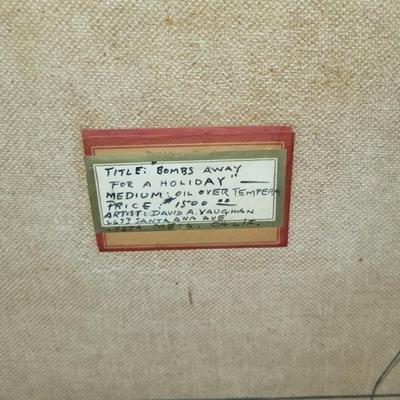 TITLE: "BOMBS AWAY
FOR A HOLIDAY" —
MEDIUM: OIL OVER TEMPERA
PRICE: $1500 00
ARTIST: DAVID A. VAUGHAN
2677 SANTA ANA AVE
COSTA MESA, CALIF.